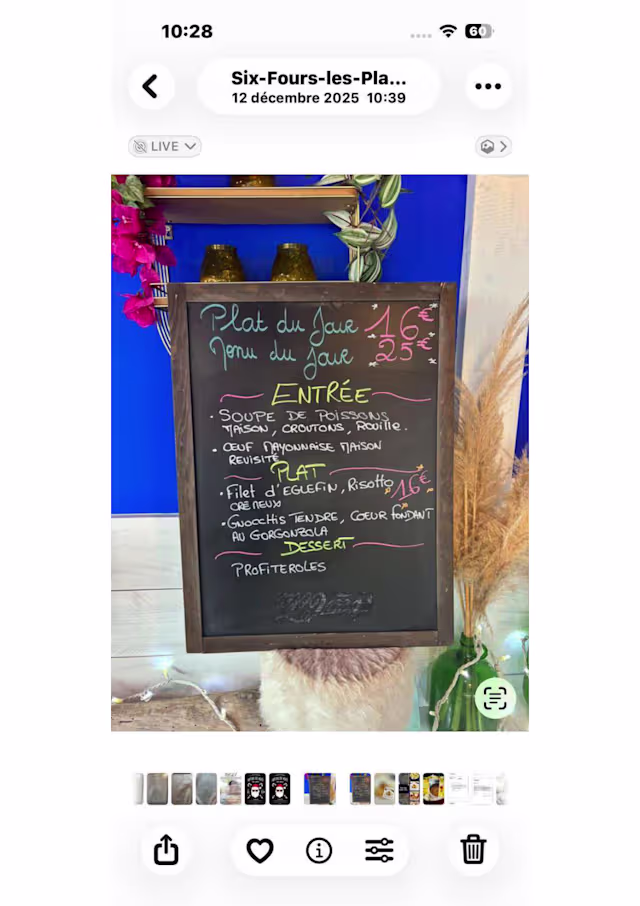 10:28
60
Six-Fours-les-Pla...
12 décembre 2025 10:39
LIVE
Plat du Jour 16€
Menu du jour 25€
ENTRÉE
• SOUPE DE POISSONS
MAISON, CROUTONS, ROUILLE.
• ŒUF MAYONNAISE MAISON
REVISITÉ
PLAT
• FILET D'EGLEFIN, RISOTTO 16€
CRÉMEUX
• GNOCCHIS TENDRE, COEUR FONDANT
AU GORGONZOLA
DESSERT
PROFITEROLES